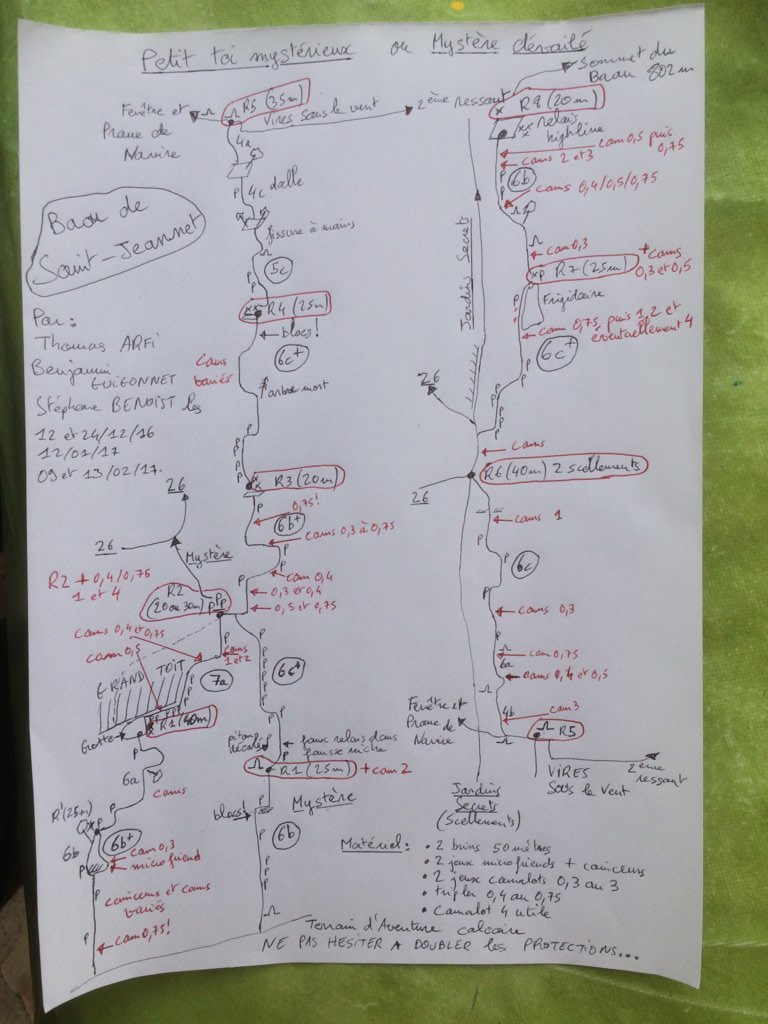 Petit toi mystérieux ou Mystère dévoilé
Sommet du
Baou 802m
R5 (35m)
Vires sous le vent
2ème ressaut
Fenêtre et
Proue de
Navire
4a
P
4c dalle
P
fissure à mains
5c
P
P
R4 (25m)
blocs!
6c+
cams
variés
arbre mort
P
P
P
P
R3 (20m)
0,75!
6b+
P
cams 0,3 à 0,75
P
cam 0,4
P
0,3 et 0,4
0,5 et 0,75
Baou de
Saint-Jeannet
Par:
Thomas ARFI
Benjamin
GUIGONNET
Stéphane BENOIST les
12 et 24/12/16
12/01/17
09 et 13/02/17.
26
26
Mystère
R2 + 0,4/0,75
1 et 4
R2
(20 ou 30m)
PPP
cams 0,4 et 0,75
cam 0,5
cams
1 et 2
GRAND TOIT
7a
Grotte
R1 (40m)
6a
P
cams
R'(25m)
P
6b
6b+
cam 0,3
microfriend
P
coinceurs et cams
variés
P
cam 0,75!
P
P
P
P
6c+
P
P
piton
recalé
faux relais dans
fausse niche
R1 (25m) + cam 2
Mystère
blocs!
6b
P
P
P
R8 (20m)
relais
highline
cam 0,5 puis
0,75
cams 2 et 3
6b
cams 0,4/0,5/0,75
cam 0,3
R7 (25m)
+ cams
0,3 et 0,5
Frigidaire
cam 0,75 puis 1,2 et
éventuellement 4
6c+
P
P
P
Jardins Secrets
26
cams
R6 (40m) 2 scellements
26
cams 1
P
6c
P
cams 0,3
P
cam 0,75
6a
cams 0,4 et 0,5
cam 3
4b
Fenêtre et
Proue de
Navire
R5
VIRES
Sous le Vent
2ème
ressaut
Jardins
Secrets
(Scellements)
Matériel:
• 2 brins 50 mètres
• 2 jeux microfriends + coinceurs
• 2 jeux camalots 0,3 au 3
• tripler 0,4 au 0,75
• Camalot 4 utile
Terrain d'Aventure calcaire
NE PAS HESITER A DOUBLER les PROTECTIONS...